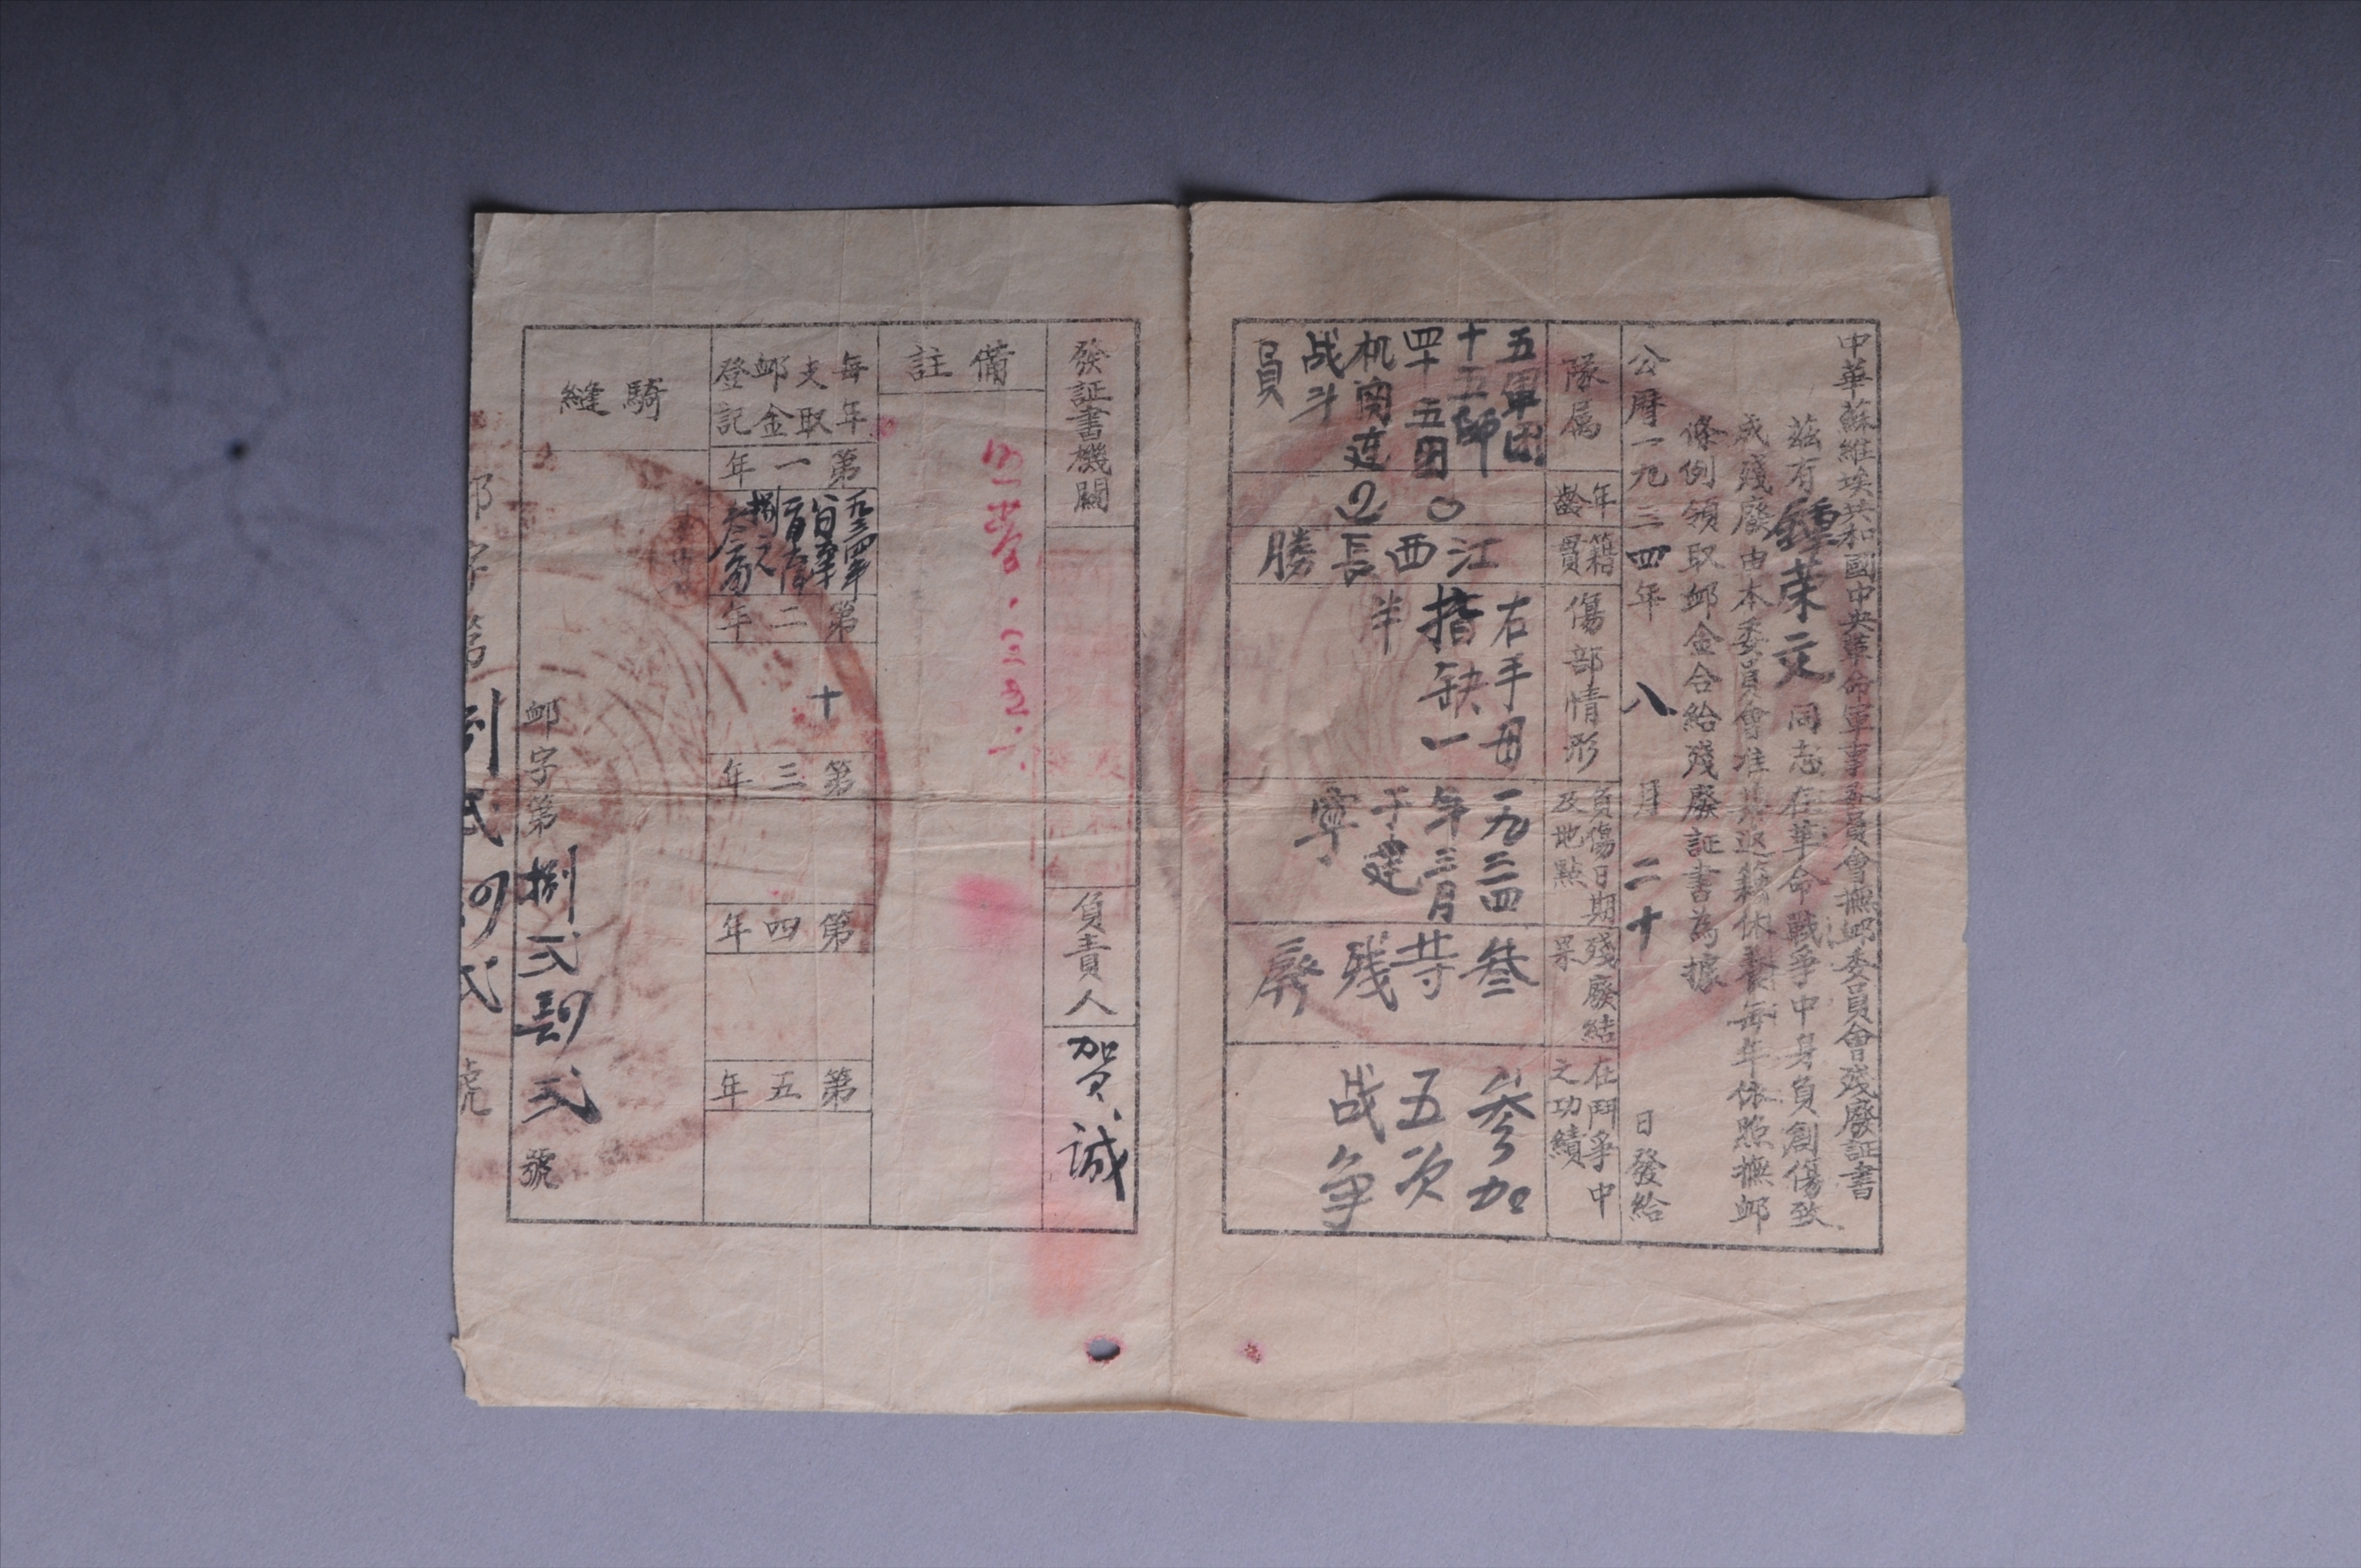 中華蘇維埃共和國中央革命軍事委員會撫卹委員會殘廢証書
茲有鍾荣文同志在革命戰爭中身負創傷致
成殘廢由本委員會准其返籍休養每年依照撫卹
條例領取卹金合給殘廢証書為據
公曆一九三四年八月二十日發給
隊屬
五軍団
十五師
四十五団
机関連
战斗
員
年齡
20
籍貫
江
西
長
勝
傷部情形
右手毋
指缺一
半
負傷日期
及地點
一九三四
年三月
于建
寧
殘廢結
果
叁
等
残
廢
在鬥爭中
之功績
参加
五次
战争
發証書機關
負責人
賀誠
備註
每年
支取
卹金
登記
第一年
一九三四年
捌元
第二年
十
第三年
第四年
第五年
騎縫
卹字第捌弍
弍號